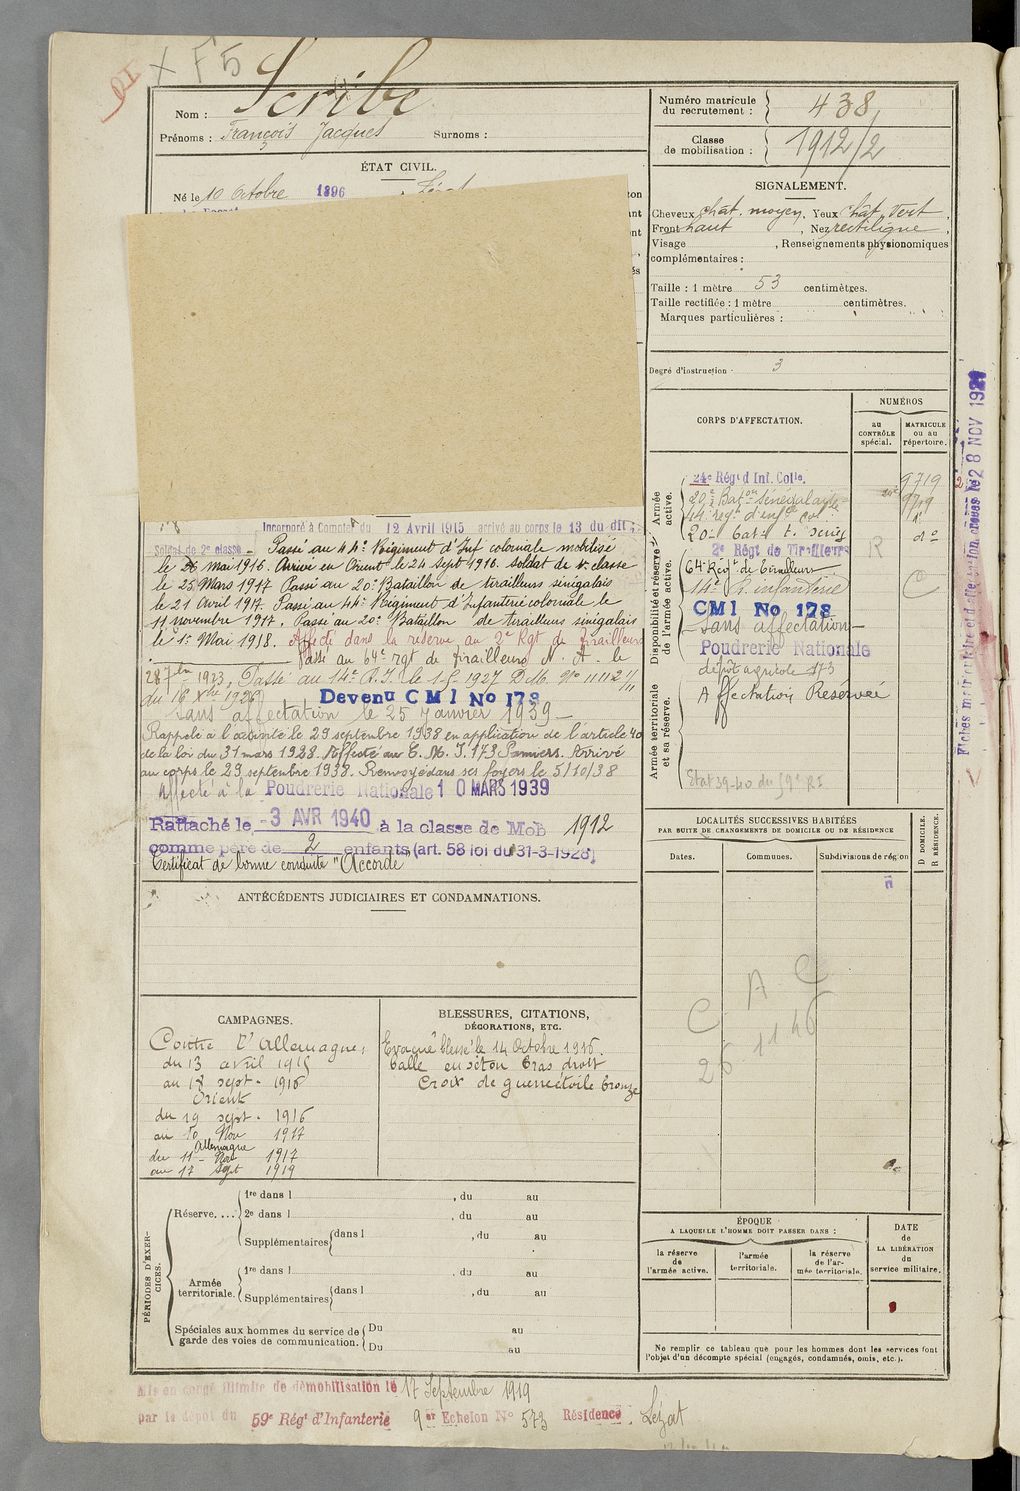 X F5
Nom : Scribe
Prénoms : François Jacques Surnoms :
ÉTAT CIVIL.
Né le 10 Octobre 1896 Lézat
Numéro matricule
du recrutement : 438
Classe
de mobilisation : 1912/2
SIGNALEMENT.
Cheveux chât. moyen, Yeux chât. vert,
Front haut, Nez rectiligne,
Visage , Renseignements physionomiques
complémentaires :
Taille : 1 mètre 53 centimètres.
Taille rectifiée : 1 mètre centimètres.
Marques particulières :
Degré d'instruction 3
CORPS D'AFFECTATION.
NUMÉROS
au
CONTRÔLE
spécial.
MATRICULE
ou au
répertoire.
Armée
active.
24e Régt d Inf. Colle. 9719
20e Baton Sénégalais
44e régt d'infie col
20e Bat t. sénég do
Disponibilité et réserve
de l'armée active.
2e Régt de Tirailleurs R
64e Regt de tirailleurs
14e R. infanterie
CMI No 178
Sans affectation
Poudrerie Nationale
dépôt agricole 173
Affectation Réservée
Armée territoriale
et sa réserve.
Etat 39-40 du 59e RI
Incorporé à Compter du 12 Avril 1915 arrivé au corps le 13 du dit
Soldat de 2e classe - Passé au 44e Régiment d'Inf coloniale mobilisé
le 26 mai 1916. Arrivé en Orient le 24 Sept 1916. Soldat de 1e classe
le 25 Mars 1917. Passé au 20e Bataillon de tirailleurs sénégalais
le 21 Avril 1917. Passé au 44e Régiment d'Infanterie coloniale le
11 novembre 1917. Passé au 20e Bataillon de tirailleurs sénégalais
le 1er Mai 1918. Affecté dans la réserve au 2e Rgt de Tirailleurs
Passé au 64e rgt de tirailleurs N. A. le
1923. Passé au 14e R.I. le 1927 D.M. No 11112
du 16 Xbre 1926 Devenu CMI No 178
Sans affectation le 25 Janvier 1939 -
Rappelé à l'activité le 29 septembre 1938 en application de l'article 40
de la loi du 31 mars 1928. Affecté au C. M. I. 173 Pamiers. Arrivé
au corps le 29 septembre 1938. Renvoyé dans ses foyers le 5/10/38
Affecté à la Poudrerie Nationale 10 MARS 1939
Rattaché le -3 AVR 1940 à la classe de Mob 1912
comme père de 2 enfants (art. 58 loi du 31-3-1928)
Certificat de bonne conduite "Accordé"
ANTÉCÉDENTS JUDICIAIRES ET CONDAMNATIONS.
CAMPAGNES.
Contre l'Allemagne :
du 13 avril 1915
au 18 sept. 1916
Orient
du 19 sept. 1916
au 10 Nov 1917
Allemagne
du 11 Nov 1917
au 17 Sept 1919
BLESSURES, CITATIONS,
DÉCORATIONS, ETC.
Evacué blessé le 14 Octobre 1916.
balle en séton bras droit
Croix de guerre étoile bronze
LOCALITÉS SUCCESSIVES HABITÉES
PAR SUITE DE CHANGEMENTS DE DOMICILE OU DE RÉSIDENCE
Dates. Communes. Subdivisions de région
D DOMICILE.
R RÉSIDENCE.
C A C
26 1146
PÉRIODES D'EXERCICES.
Réserve.... 1re dans l , du au
2e dans l , du au
Supplémentaires dans l , du au
Armée
territoriale. 1re dans l , du au
Supplémentaires dans l , du au
Spéciales aux hommes du service de
garde des voies de communication. Du au
Du au
ÉPOQUE
A LAQUELLE L'HOMME DOIT PASSER DANS :
la réserve
de
l'armée active.
l'armée
territoriale.
la réserve
de l'ar-
mée territoriale.
DATE
de
LA LIBÉRATION
du
service militaire.
Ne remplir ce tableau que pour les hommes dont les services font
l'objet d'un décompte spécial (engagés, condamnés, omis, etc.).
Mis en congé illimité de démobilisation le 17 Septembre 1919
par le dépôt du 59e Régt d'Infanterie 9er Echelon No 573 Résidence Lézat